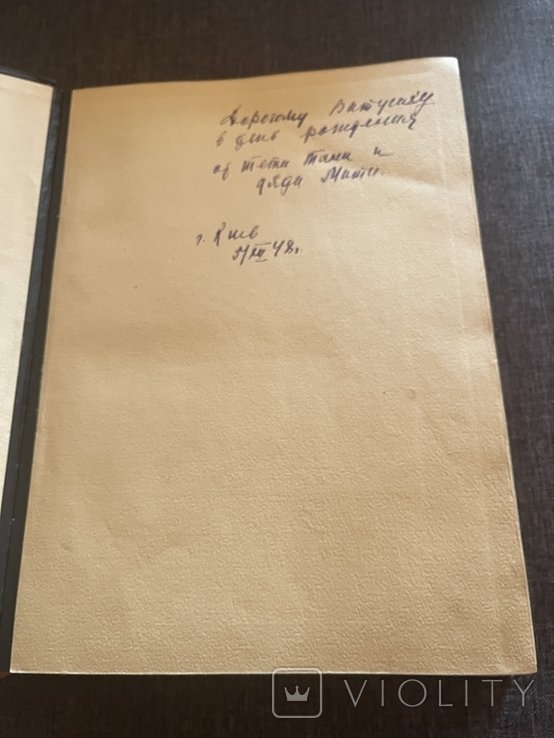 Дорогому Витусику
в день рождения
от тети Тани и
дяди Мити
г. Киев
5/XII 48г.
VIOLITY